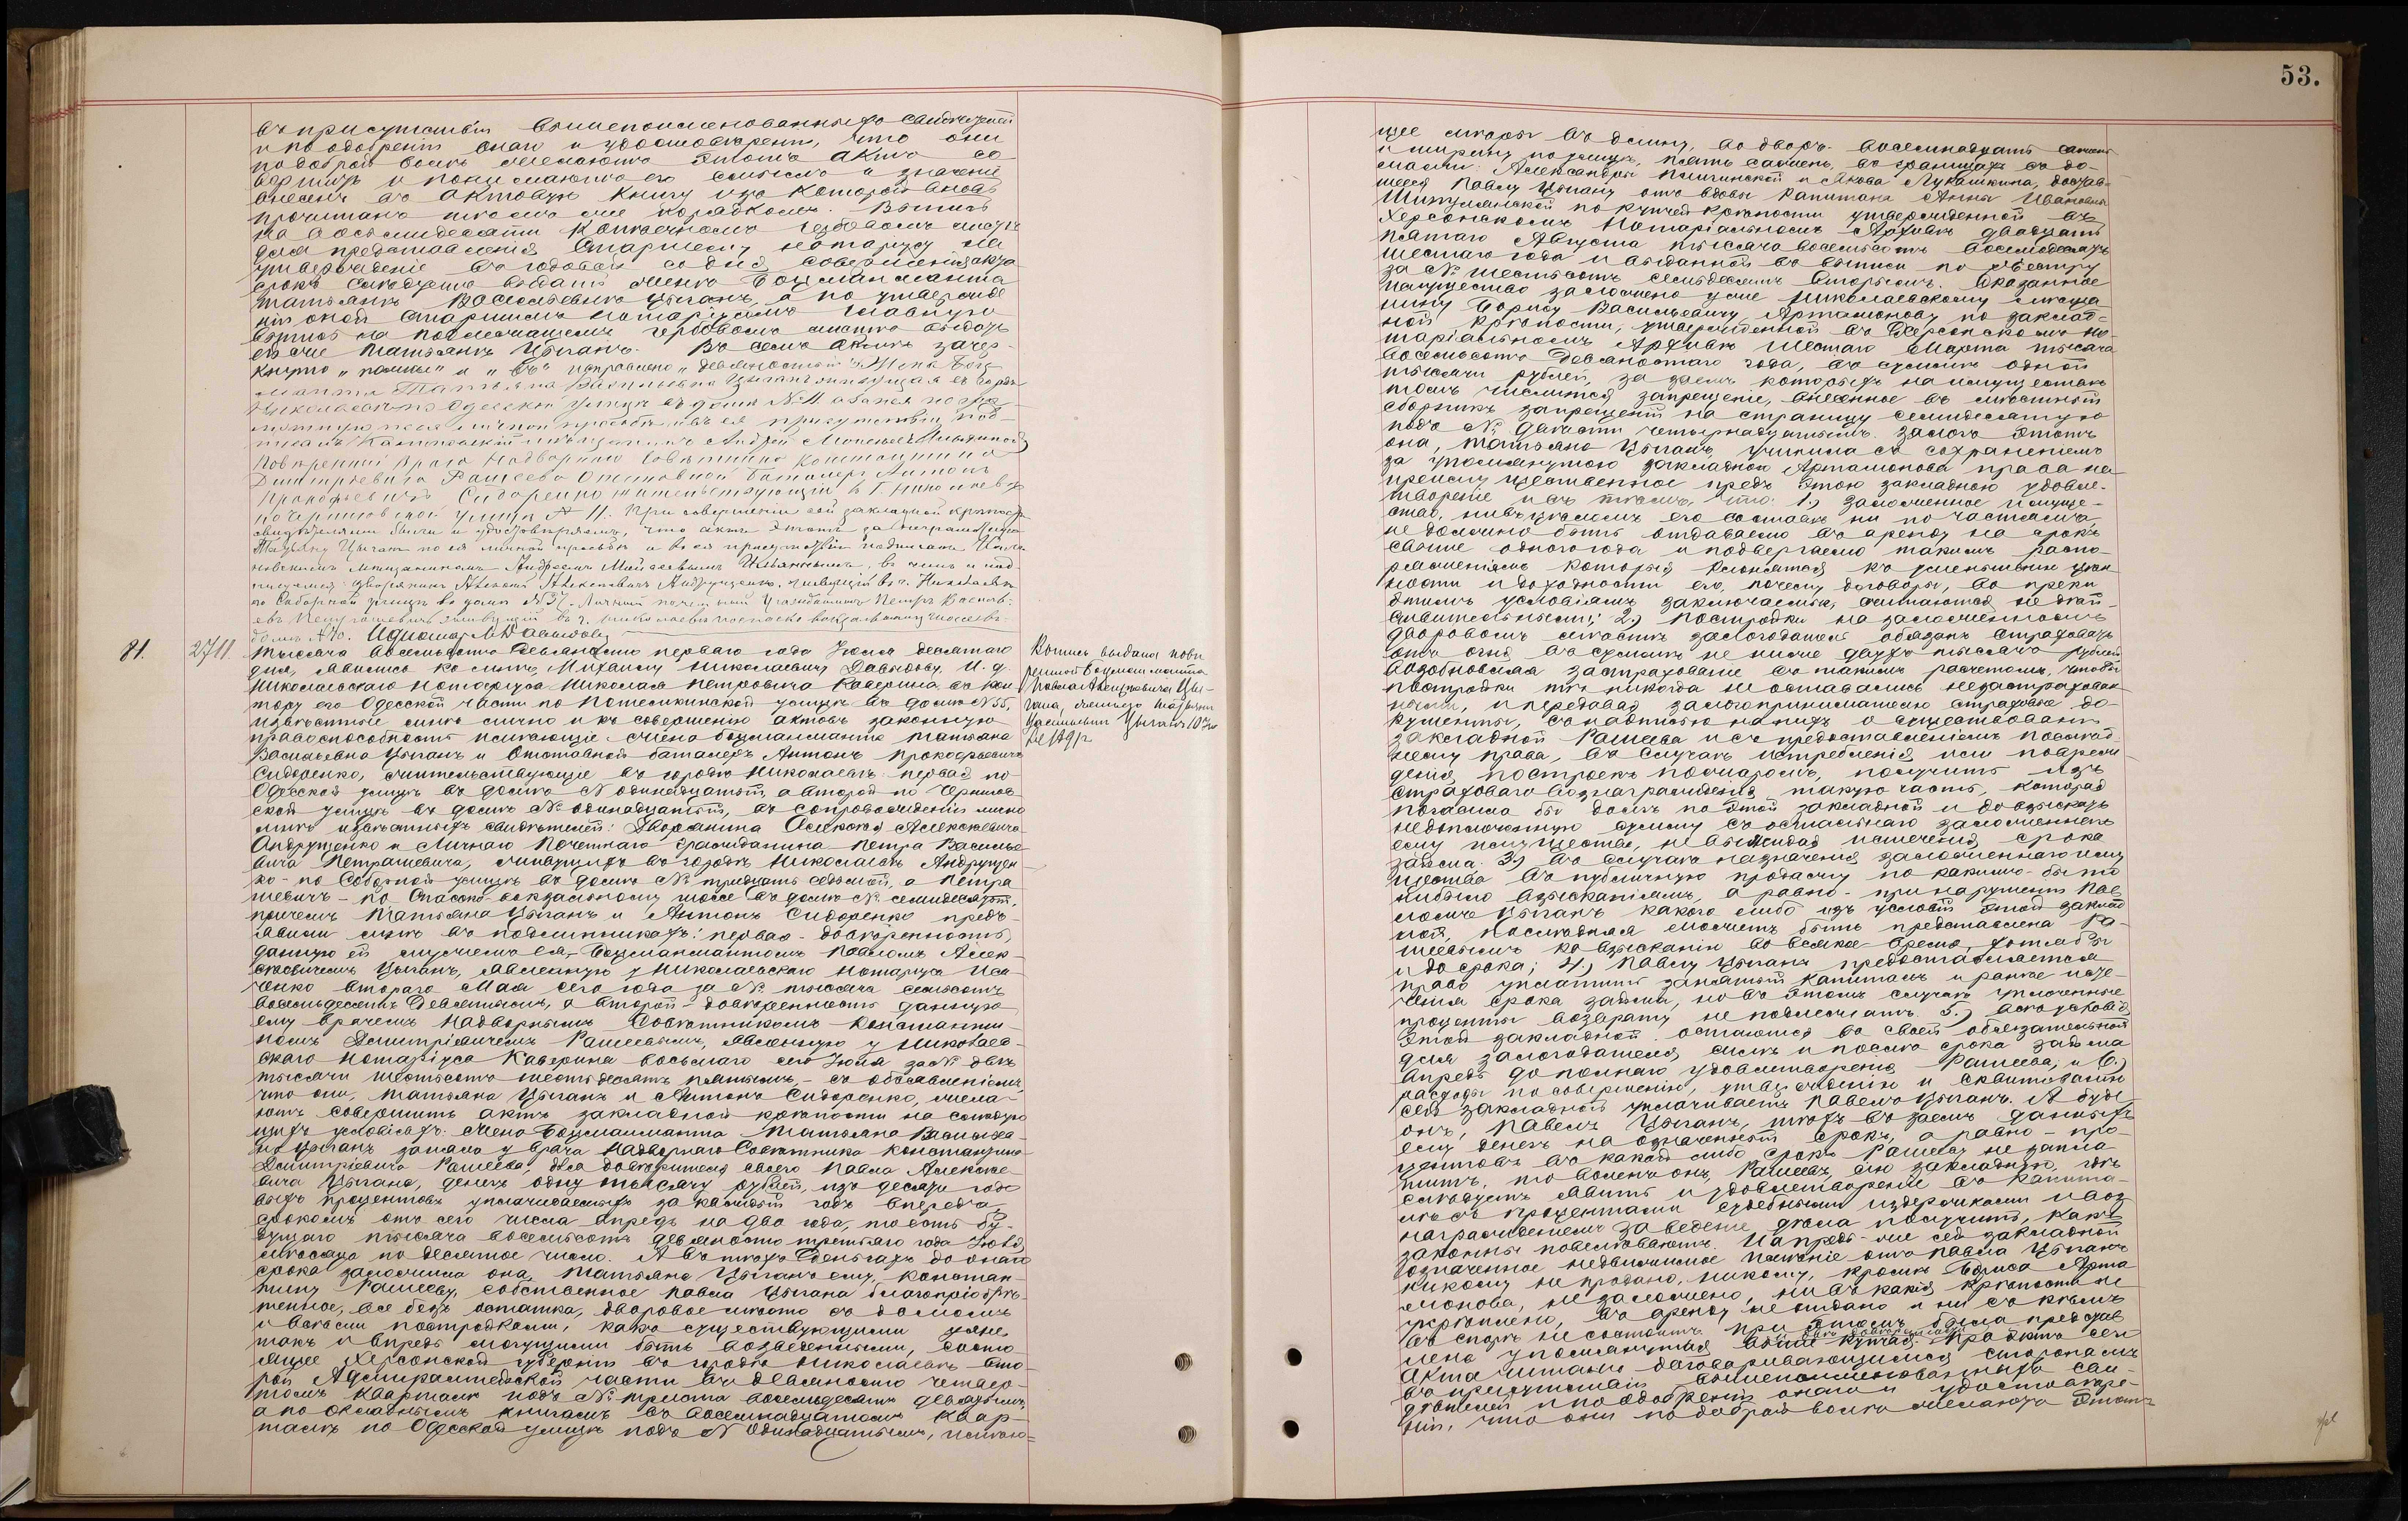 въ присутствіи вышепоименованныхъ свидѣтелей
и по одобреніи онаго и удостовѣреніи, что они
по доброй волѣ желаютъ этотъ актъ со-
вершить и понимаютъ его смыслъ и значеніе
внесенъ въ актовую книгу изъ которой вновь
прочитанъ тѣмъ же порядкомъ. Выпись
на восьмидесяти копѣечномъ гербовомъ листѣ
для представленія Старшему нотаріусу на
утвержденіе въ годовой со дня совершенія акта
срокъ слѣдуетъ выдать женѣ Боцманмата
Татьянѣ Васильевнѣ Цыганъ, а по утвержде
ніи оной Старшимъ Нотаріусомъ главную
выпись на подлежащемъ гербовомъ листѣ выдать
ей же Татьянѣ Цыганъ. Въ семъ актѣ зачер-
кнуто и "въ" исправлено Жена Боц-
манмата Татьяна Васильевна Цыганъ живущая въ городѣ
Николаевѣ по Одесской улицѣ въ домѣ № 11 а за нея негра-
мотную по ея личной просьбѣ и въ ея присутствіи под-
писалъ мѣщанинъ Андрей
Повѣренный врача Надворнаго Совѣтника Константина
Дмитріевича Рашеева Отставной Баталеръ Антонъ
Прокофьевичъ Сидоренко жительствующій въ г. Николаевѣ
по Черниговской улицѣ № 11. При совершеніи сей закладной крѣпости
свидѣтелями были и удостовѣряемъ, что актъ этотъ за неграмотную
Татьяну Цыганъ по ея личной просьбѣ и въ ея присутствіи подписанъ
мѣщаниномъ Андреемъ въ чемъ и под-
писуемся дворянинъ Алексѣй Алексѣевичъ Андрущенко, живущій въ г. Николаевѣ
по Соборной улицѣ въ домѣ № 37. Личный почетный Гражданинъ Петръ Василь-
евъ Петрашевичъ живущій въ г. Николаевѣ по Спасско вокзальному шоссе въ
домѣ № 70. И.д. Нотар. М. Давыдовъ
81. 2711. Тысяча восемьсотъ девяносто перваго года Іюля десятаго
дня, явились ко мнѣ, Михаилу Николаевичу Давыдову, И. д.
Николаевскаго Нотаріуса Николая Петровича Каверина, въ кон
тору его Одесской части по Потемкинской улицѣ въ домѣ № 55,
извѣстные мнѣ лично и къ совершенію актовъ законную
правоспособность имѣющіе: жена боцманмата Татьяна
Васильевна Цыганъ и Отставной баталеръ Антонъ Прокофьевичъ
Сидоренко, жительствующіе въ городѣ Николаевѣ: первая по
Одесской улицѣ въ домѣ № одинадцатый, а второй по Чернигов
ской улицѣ въ домѣ № одинадцатый, въ сопровожденіи лично
мнѣ извѣстныхъ свидѣтелей: Дворянина Алексѣя Алексѣевича
Андрущенко и Личнаго Почетнаго гражданина Петра Василье
вича Петрашевича, живущихъ въ городѣ Николаевѣ Андрущен
ко - по Соборной улицѣ въ домѣ № тридцать седьмой, а Петра
шевичъ - по Спасско-вокзальному шоссе въ домѣ № семидесятый,
причемъ Татьяна Цыганъ и Антонъ Сидоренко предъ-
явили мнѣ въ подлинникахъ: первая - довѣренность,
данную ей мужемъ ея, Боцманматомъ Павломъ Алек-
сѣевичемъ Цыганъ, явленную у Николаевскаго Нотаріуса Иса
ченко втораго Мая сего года за № тысяча семьсотъ
восемьдесятъ девятымъ, а второй - довѣренность данную
ему врачемъ Надворнымъ Совѣтникомъ Константи-
номъ Дмитріевичемъ Рашеевымъ, явленную у Николаев-
скаго Нотаріуса Каверина восьмаго сего Іюля за № двѣ
тысячи шестьсотъ шестьдесятъ пятымъ, - съ объявленіемъ,
что они, Татьяна Цыганъ и Антонъ Сидоренко, жела-
ютъ совершить актъ закладной крѣпости на слѣдую
щихъ условіяхъ: жена боцманмата Татьяна Василье-
вна Цыганъ заняла у врача Надворнаго Совѣтника Константина
Дмитріевича Рашеева, для довѣрителя своего Павла Алексѣе-
вича Цыгана, денегъ одну тысячу рублей, изъ десяти годо
выхъ процентовъ уплачиваемыхъ за каждый годъ впередъ,
срокомъ отъ сего числа впредь на два года, то есть бу-
дущаго тысяча восемьсотъ девяносто третьяго года Іюля
мѣсяца по десятое число. А въ тѣхъ деньгахъ до онаго
срока заложила она, Татьяна Цыганъ ему, Констан-
тину Рашееву, собственное Павла Цыгана благопріобрѣ-
тенное, все безъ остатка, дворовое мѣсто съ домомъ
и всѣми постройками, какъ существующими нынѣ,
такъ и впредь могущими быть возведенными, состо
ящее Херсонской губерніи въ городѣ Николаевѣ вто-
рой Адмиралтейской части въ девяносто четвер-
томъ кварталѣ подъ № триста восемьдесятъ девятымъ,
а по окладнымъ книгамъ въ восемнадцатомъ квар-
талѣ по Одесской улицѣ подъ № одинадцатымъ, имѣю=
Копись выдана повѣ
ренной Боцманмата
Павла Алексѣевича Цы-
гана, женѣ его Татьянѣ
Васильевнѣ Цыганъ 10 Іюля
1891 г.
53.
щее мѣры въ длину, во дворъ восемнадцать сажень
и ширину по улицѣ, пять сажень, въ границахъ съ до-
мами: Александры и Якова Лукашкина, достав-
шееся Павлу Цыгану отъ вдовы Капитана Анны Ивановны
по купчей крѣпости утвержденной въ
Херсонскомъ Нотаріальномъ Архивѣ двадцать
пятаго Августа тысяча восемьсотъ восемьдесятъ
шестаго года и выданной въ выписи по реестру
за № шестьсотъ семьдесятъ вторымъ. Оказанное
имущество заложено уже Николаевскому мѣща
нину Борису Васильевичу Артамонову по заклад-
ной крѣпости, утвержденной въ Херсонскомъ Но-
таріальномъ Архивѣ шестаго Марта тысяча
восемьсотъ девяностаго года, въ суммѣ одной
тысячи рублей, за заемъ которыхъ на имуществѣ
томъ числится запрещеніе, внесенное въ мѣстный
сборникъ запрещеній на страницу семидесятую
подъ № двѣсти четырнадцатымъ. Залогъ этотъ
она, Татьяна Цыганъ, учинила съ сохраненіемъ
за упомянутою закладною Артамонова права на
преимущественное предъ этою закладною удовле-
твореніе и съ тѣмъ, что: 1.) заложенное имуще-
ство, ни въ цѣломъ его составѣ ни по частямъ
не должно быть отдаваемо въ аренду на срокъ
свыше одного года и подвергаемо такимъ распо-
ряженіямъ которыя клонятся къ уменьшенію цѣн-
ности и доходности его, почему договоры, во преки
этимъ условіямъ заключаемые, считаются недѣй-
ствительными; 2.) постройки на заложенномъ
дворовомъ мѣстѣ залогодатель обязанъ страховать
отъ огня въ суммѣ не ниже двухъ тысячъ рублей
возобновляя застрахованіе съ такимъ расчетомъ, чтобы
постройки тѣ никогда не оставались незастрахован-
ными, и передавая залогопринимателю страховые до-
кументы, съ надписью на нихъ о существованіи
закладной Рашеева и съ предоставленіемъ послѣд-
нему права, въ случаѣ истребленія или повреж-
денія построекъ пожаромъ, получить изъ
страховаго вознагражденія такую часть, которая
погасила бы долгъ по этой закладной и довзыскать
недополученную сумму съ остальнаго заложеннаго
ему имущества, не выжидая истеченія срока
займа. 3.) въ случаѣ назначенія заложеннаго иму
щества въ публичную продажу по какимъ-бы то
нибыло взысканіямъ, а равно - при нарушеніи Пав
ломъ Цыганъ какого либо изъ условій этой заклад
ной, послѣдняя можетъ быть представлена Ра-
шеевымъ ко взысканію во всякое время, хотя бы
и до срока; 4.) Павлу Цыганъ предоставляется
право уплатить занятый капиталъ и ранѣе исте-
ченія срока займа, но въ этомъ случаѣ уплоченные
проценты возврату не подлежатъ. 5.) всѣ условія
этой закладной остаются во своей обязательной
для залогодателя силѣ и послѣ срока займа
впредь до полнаго удовлетворенія Рашеева; и 6.)
расходы по совершенію, утвержденію и сквитованію
сей закладной уплачиваетъ Павелъ Цыганъ. А буде
онъ, Павелъ Цыганъ, тѣхъ въ заемъ данныхъ
ему денегъ на означенный срокъ, а равно - про-
центовъ въ какой либо срокъ Рашееву не запла-
титъ, то воленъ онъ, Рашеевъ, сію закладную, гдѣ
слѣдуетъ явить и удовлетвореніе въ капита-
лѣ съ процентами судебными издержками и воз
награжденіемъ за веденіе дѣла получить, какъ
законы повелѣваютъ. Напредъ-же сей закладной
означенное недвижимое имѣніе отъ Павла Цыганъ
никому не продано, никому, кромѣ Бориса Арта
монова, не заложено, ни въ какія крѣпости не
укрѣплено, въ аренду не отдано и ни съ кѣмъ
въ спорѣ не состоитъ. При этомъ была представ
лена упомянутая выше купчая. Проэктъ сего
акта читанъ договаривающимся сторонамъ
въ присутствіи вышепоименованныхъ сви-
дѣтелей и по одобреніи онаго и удостовѣре-
ніи, что они по доброй волѣ желаютъ этотъ